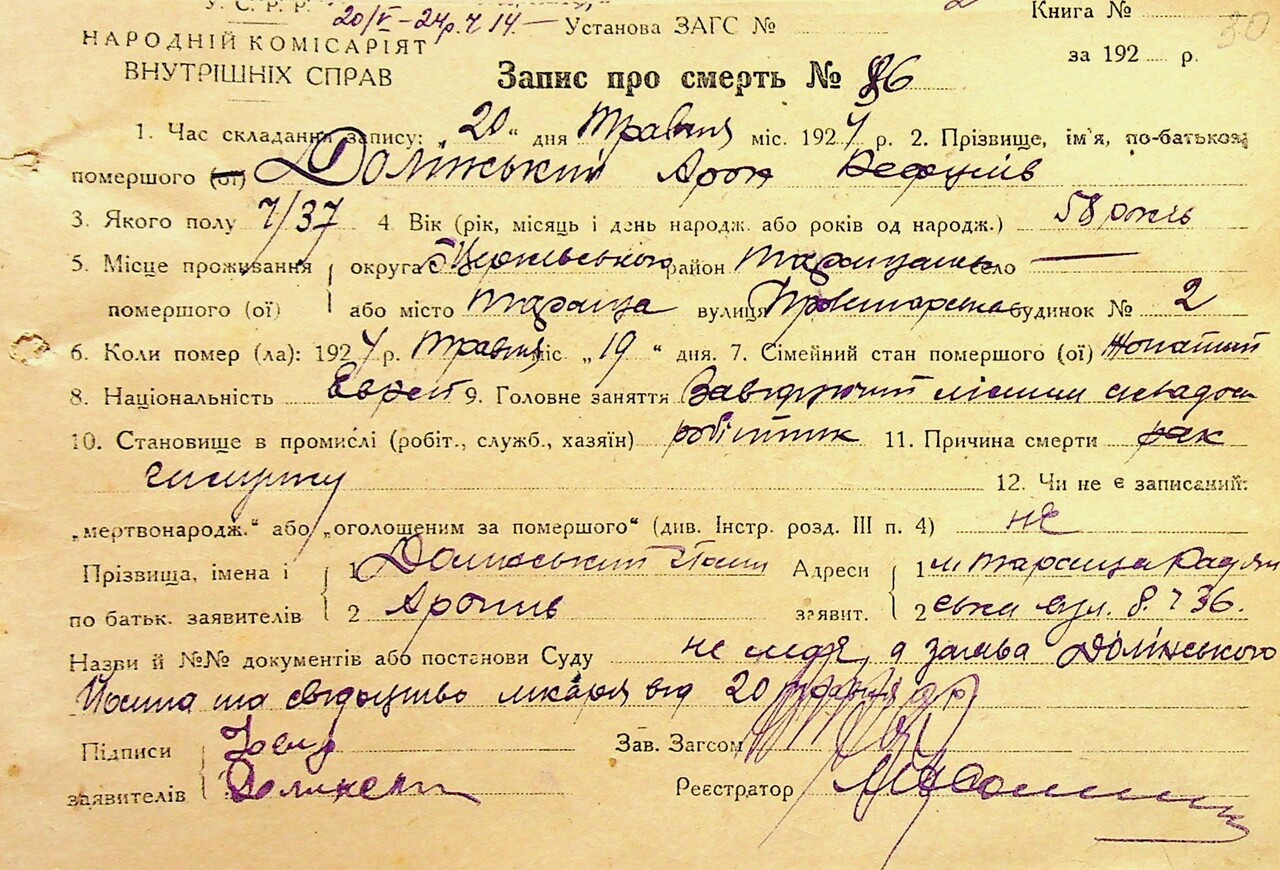 У. С. Р. Р.
20/V – 24 р. ч 14 — Установа ЗАГС № Книга № 30
НАРОДНІЙ КОМІСАРІЯТ
ВНУТРІШНІХ СПРАВ
за 192 р.
Запис про смерть № 86
1. Час складання запису: „20“ дня Травня міс. 1924 р. 2. Прізвище, ім'я, по-батькові
помершого (ої) Долінський Арон
3. Якого полу ч/37 4. Вік (рік, місяць і день народж. або років од народж.) 58 років
5. Місце проживання округа Б Церківського район Таращань село —
помершого (ої) або місто Тараща вулиця Пролетарська будинок № 2
6. Коли помер (ла): 1924 р. Травня міс. „19“ дня. 7. Сімейний стан помершого (ої) Жонатий
8. Національність Еврей 9. Головне заняття Завідуючий лісним складом
10. Становище в промислі (робіт., служб., хазяїн) робітник 11. Причина смерти рак
12. Чи не є записаний:
„мертвонародж.“ або „оголошеним за помершого“ (див. Інстр. розд. III п. 4) не
Прізвища, імена і 1 Долінський Адреси 1 м Тараща Радян
по батьк. заявителів 2 Аронів заявит. 2 ська вул. 8. ч 36.
Назви й №№ документів або постанови Суду не має, а заява Долінського
Йосипа та свідоцтво лікаря від 20 травня
Підписи Зав. Загсом
заявителів Реєстратор